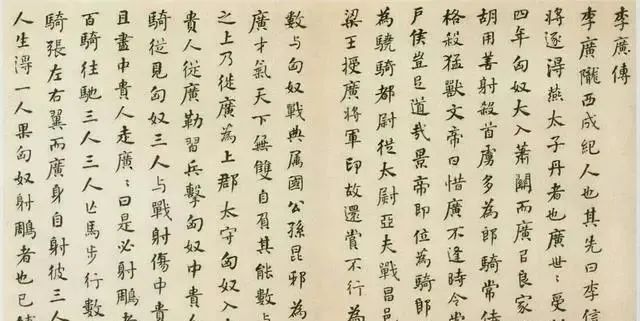 李廣傳
李廣隴西成紀人也其先曰李信
將逐淂燕太子丹者也廣世〻受
四年匈奴大入蕭關而廣㠯良家
胡用善射殺首虜多為郎騎常侍
格殺猛獸文帝曰惜廣不逢時令當
戶侯豈足道哉景帝即位為騎郎
為驍騎都尉從太尉亞夫戰昌邑
梁王授廣將軍印故還賞不行為
數与匈奴戰典属國公孫昆邪為
廣才氣天下無雙自負其能數与
之上乃徙廣為上郡太守匈奴入
貴人從廣勒習兵擊匈奴中貴人
騎從見匈奴三人与戰射傷中貴
且盡中貴人走廣〻曰是必射鵰者
百騎往馳三人三人亾馬步行數
騎張左右翼而廣身自射彼三人
人生淂一人果匈奴射鵰者也已縛